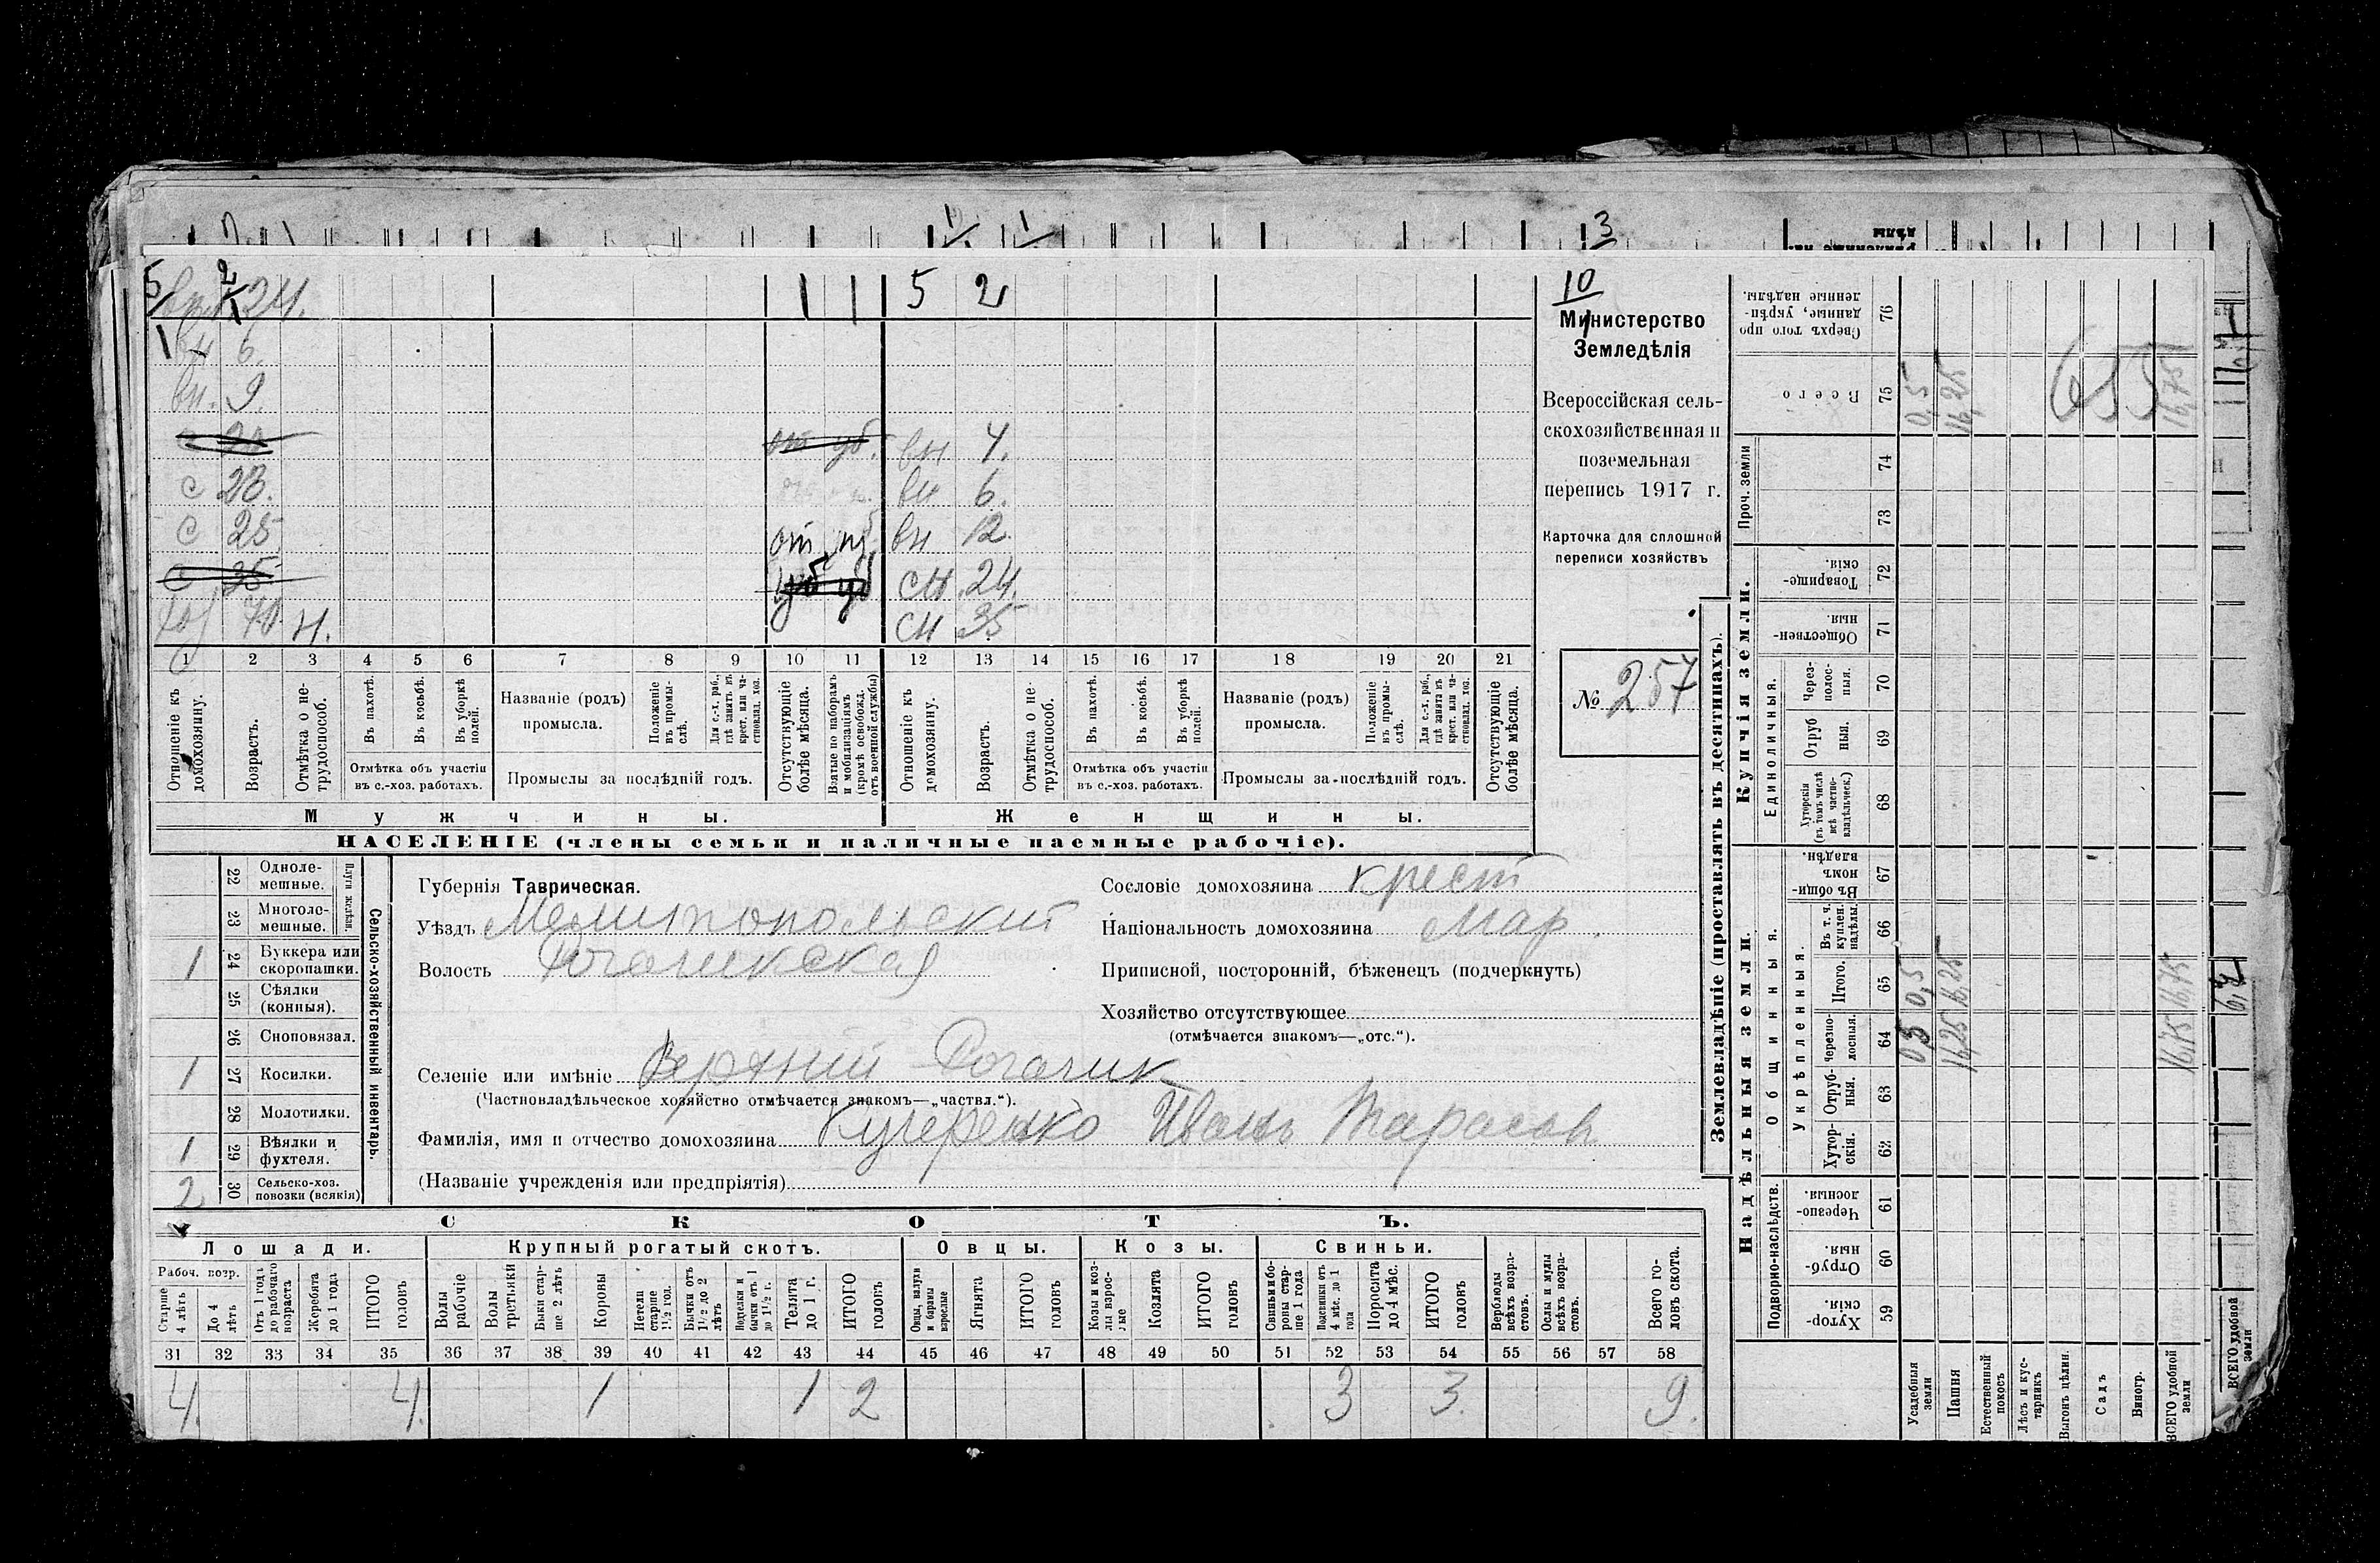 3
10
5 вр. 2/1 24. 1 1 5 2
1 вн 6.
вн. 9.
вн 4.
с 23. вн 6.
с 25 от вн 12.
с 35 сн 24.
хоз 70. н. сн 35
1 2 3 4 5 6 7 8 9 10 11 12 13 14 15 16 17 18 19 20 21
Отношеніе къ домохозяину.
Возрастъ.
Отмѣтка о не-трудоспособ.
Въ пахотѣ.
Въ косьбѣ.
Въ уборкѣ полей.
Отмѣтка объ участіи
въ с.-хоз. работахъ.
Названіе (родъ)
промысла.
Положеніе въ промы-слѣ.
Для с.-х. раб., гдѣ занятъ въ крест. или ча-стновлад. хоз.
Промыслы за послѣдній годъ.
Отсутствующіе болѣе мѣсяца.
Взятые по наборамъ и мобилизаціямъ (кромѣ освобожд. отъ военной службы)
Отношеніе къ домохозяину.
Возрастъ.
Отмѣтка о не-трудоспособ.
Въ пахотѣ.
Въ косьбѣ.
Въ уборкѣ полей.
Отмѣтка объ участіи
въ с.-хоз. работахъ.
Названіе (родъ)
промысла.
Положеніе въ промы-слѣ.
Для с.-х. раб., гдѣ занятъ въ крест. или ча-стновлад. хоз.
Промыслы за послѣдній годъ.
Отсутствующіе болѣе мѣсяца.
Мужчины. Женщины.
НАСЕЛЕНІЕ (члены семьи и наличные наемные рабочіе).
Министерство
Земледѣлія
Всероссійская сель-
скохозяйственная и
поземельная
перепись 1917 г.
Карточка для сплошной
переписи хозяйствъ
№ 257
22 Одноле-мешные.
23 Многоле-мешные.
Плуги желѣзн.
1 24 Буккера или скоропашки.
25 Сѣялки (конныя).
26 Сноповязал.
1 27 Косилки.
28 Молотилки.
1 29 Вѣялки и фухтеля.
2 30 Сельско-хоз. повозки (всякія)
Сельско-хозяйственный инвентарь.
Губернія Таврическая.
Уѣздъ Мелитопольский
Волость Рогачикская
Сословіе домохозяина крест
Національность домохозяина мар.
Приписной, посторонній, бѣженецъ (подчеркнуть)
Хозяйство отсутствующее
(отмѣчается знакомъ—„отс.“).
Селеніе или имѣніе Верхний Рогачик
(Частновладѣльческое хозяйство отмѣчается знакомъ—„частвл.“).
Фамилія, имя и отчество домохозяина Кучеренко Иванъ Тарасов
(Названіе учрежденія или предпріятія)
СКОТЪ.
Лошади. Крупный рогатый скотъ. Овцы. Козы. Свиньи.
Рабоч. возр.
Старше 4 лѣтъ
До 4 лѣтъ
Отъ 1 года до рабочаго возраста
Жеребята до 1 года
ИТОГО головъ
Волы рабочіе
Волы третьяки
Быки стар-ше 2 лѣтъ
Коровы
Нетели старше 1½ год.
Бычки отъ 1½ до 2 лѣтъ
Подтелки и бычки отъ 1 до 1½ г.
Телята до 1 г.
ИТОГО головъ
Овцы, валухи и бараны взрослые
Ягнята
ИТОГО головъ
Козы и коз-лы взрос-лые
Козлята
ИТОГО головъ
Свиньи и бо-ровы стар-ше 1 года
Подсвинки отъ 4 мѣс. до 1 года
Поросята до 4 мѣс.
ИТОГО головъ
Верблюды всѣхъ возра-стовъ.
Ослы и мулы всѣхъ возра-стовъ.
Всего го-ловъ скота.
31 32 33 34 35 36 37 38 39 40 41 42 43 44 45 46 47 48 49 50 51 52 53 54 55 56 57 58
4. 4. 1 1 2 3 3. 9.
Землевладѣніе (проставлять въ десятинахъ).
Купчія земли.
Надѣльныя земли.
Сверхъ того про данные, укрѣп-ленные надѣлы. 76
Всего 75 0,5 16,25 16,75
655
Проч. земли 74 73
Товарище-скія. 72
Обществен-ныя 71
Единоличныя.
Через-полос-ныя. 70
Отруб ныя. 69
Хуторскія (въ томъ числѣ всѣ частно-владѣльческ.) 68
Въ общи-номъ владѣн. 67
Общинныя.
Укрѣпленныя.
Въ т. ч. куплен. надѣлы. 66
Итого. 65 0,5 16,25 16,75
Черезпо-лосныя. 64 0,5 16,25 16,75
Отруб-ныя. 63
Хутор-скія. 62
Подворно-наслѣдств.
Черезпо-лосныя. 61
Отруб-ныя. 60
Хутор-скія. 59
Усадебныя земли
Пашня
Естественный покосъ
Лѣсъ и кус-тарникъ
Выгонъ цѣлин.
Садъ
Виногр.
ВСЕГО удобной земли
ВСЕГО удобной земли